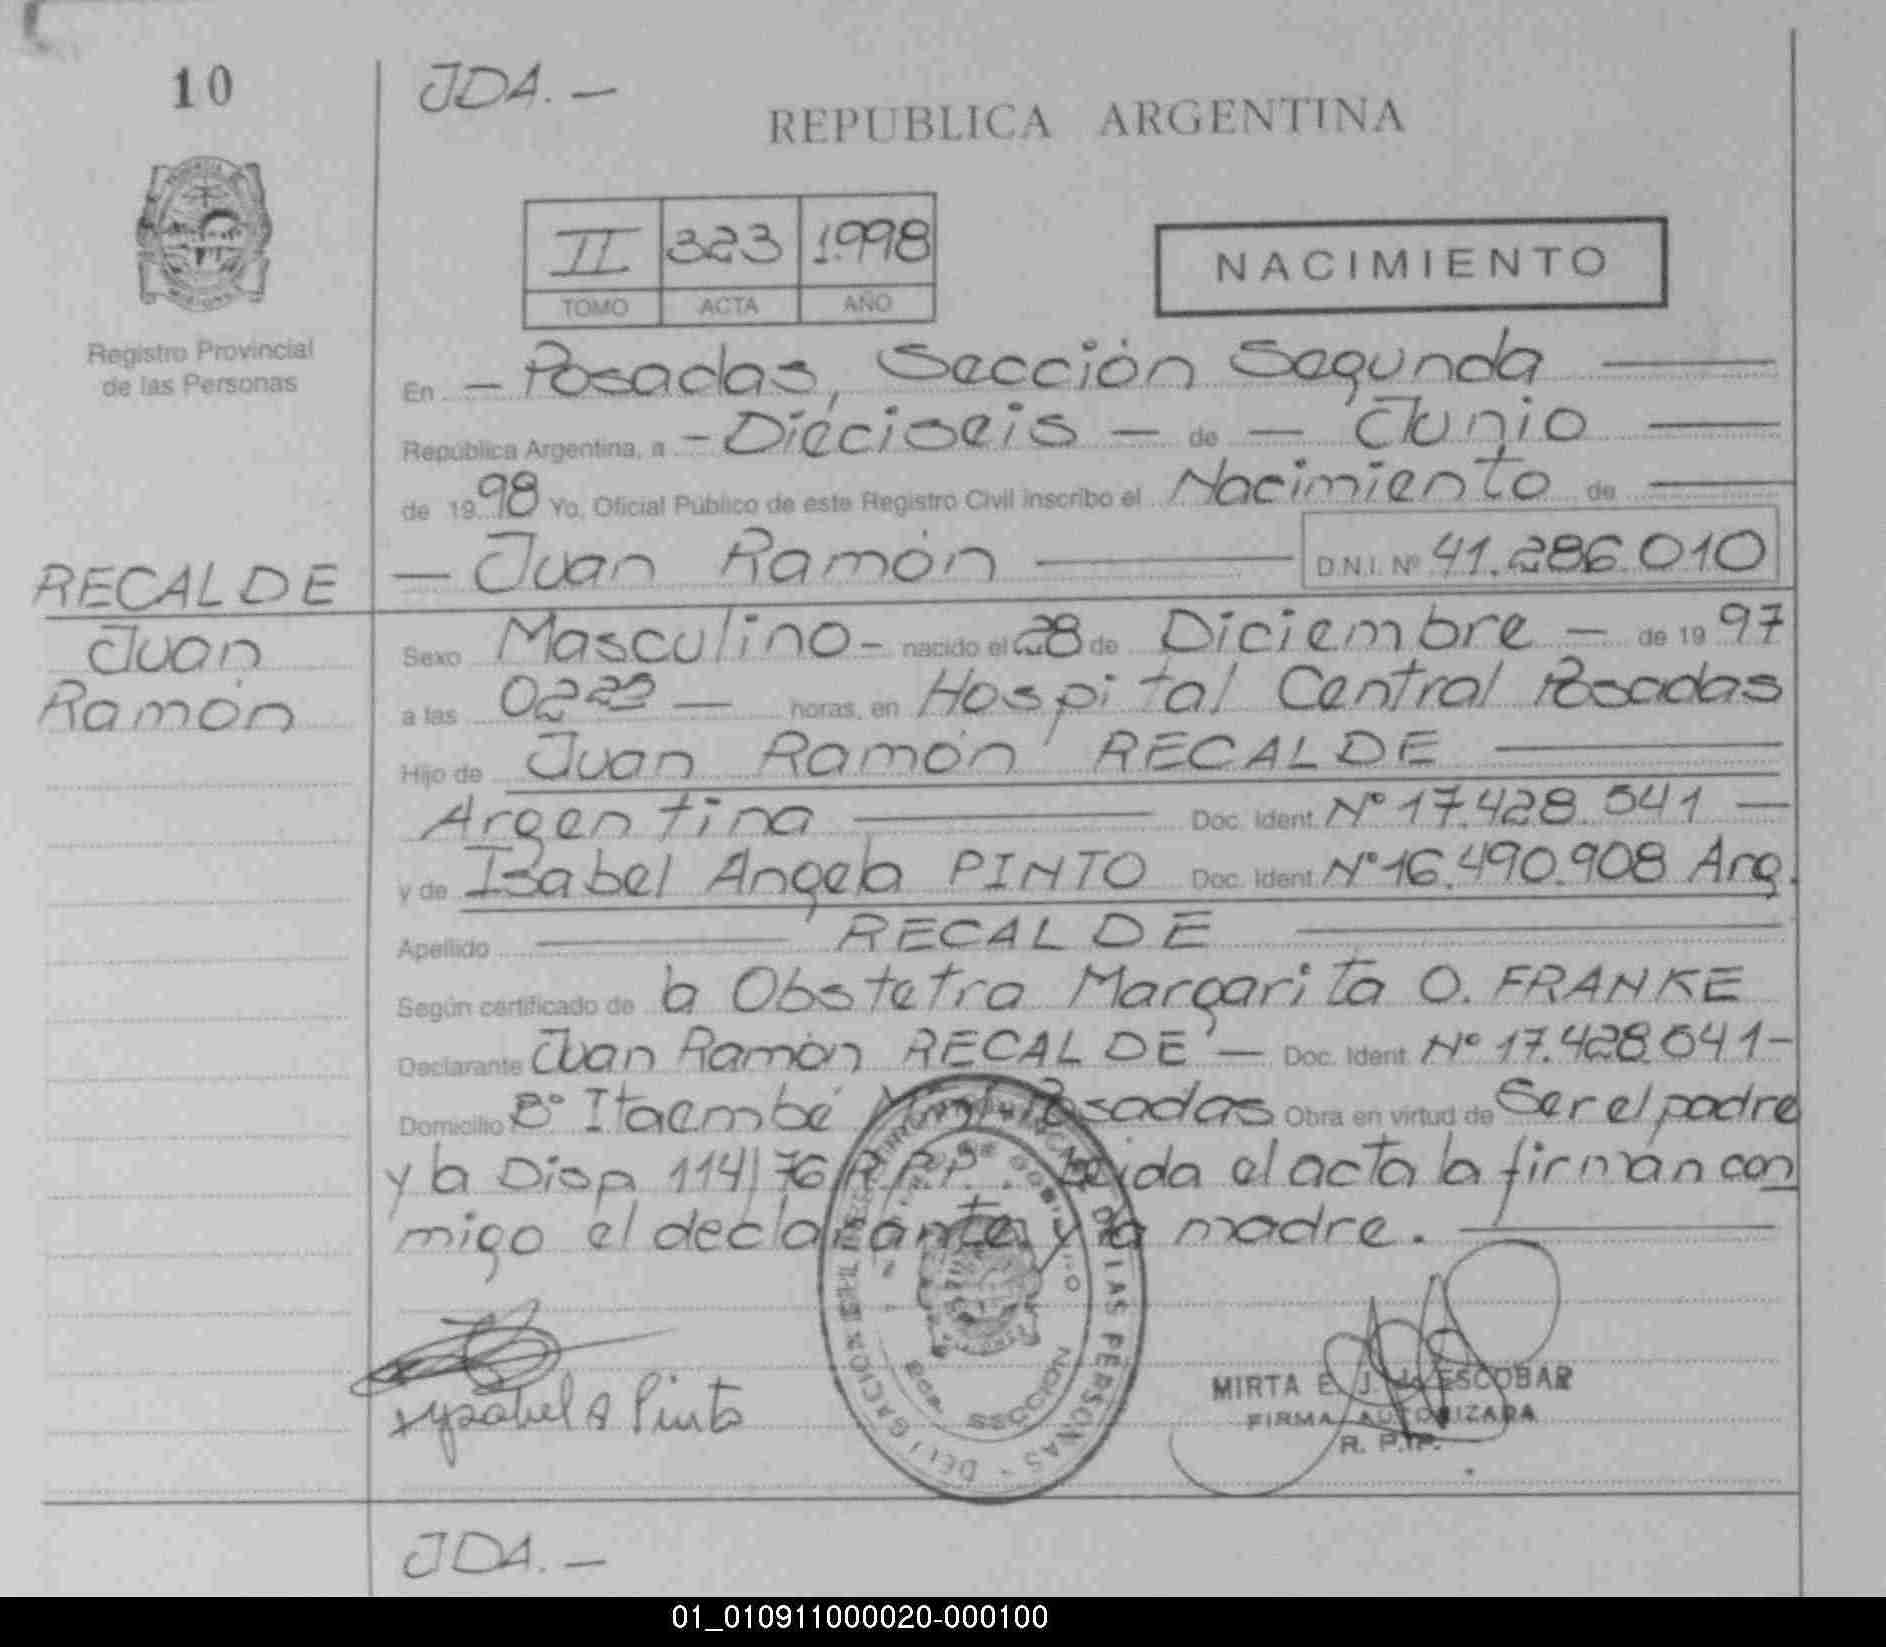 10
JDA. —
REPUBLICA ARGENTINA
II 323 1.998
TOMO ACTA AÑO
NACIMIENTO
Registro Provincial
de las Personas
En — Posadas, Sección Segunda —
República Argentina, a — Dieciseis — de — Junio —
de 1998 Yo, Oficial Público de este Registro Civil inscribo el Nacimiento de —
RECALDE
Juan
Ramón
— Juan Ramón — D.N.I. Nº 41.286.010
Sexo Masculino — nacido el 28 de Diciembre — de 1997
a las — horas, en Hospital Central Posadas
Hijo de Juan Ramón RECALDE —
Argentina — Doc. Ident. Nº 17.428.541 —
y de Isabel Angela PINTO Doc. Ident. Nº 16.490.908 Arg.
Apellido — RECALDE —
Según certificado de la Obstetra Margarita O. FRANKE
Declarante Juan Ramón RECALDE — Doc. Ident. Nº 17.428.541 —
Domicilio Bº Itaembé Miní Posadas Obra en virtud de Ser el padre
y la Disp. 114/76 R.P.P. . Leída el acta la firman con
migo el declarante y la madre. —
Ysabel A Pinto
MIRTA E. J. de ESCOBAR
FIRMA AUTORIZADA
R. P. P.
JDA. —
01_010911000020-000100